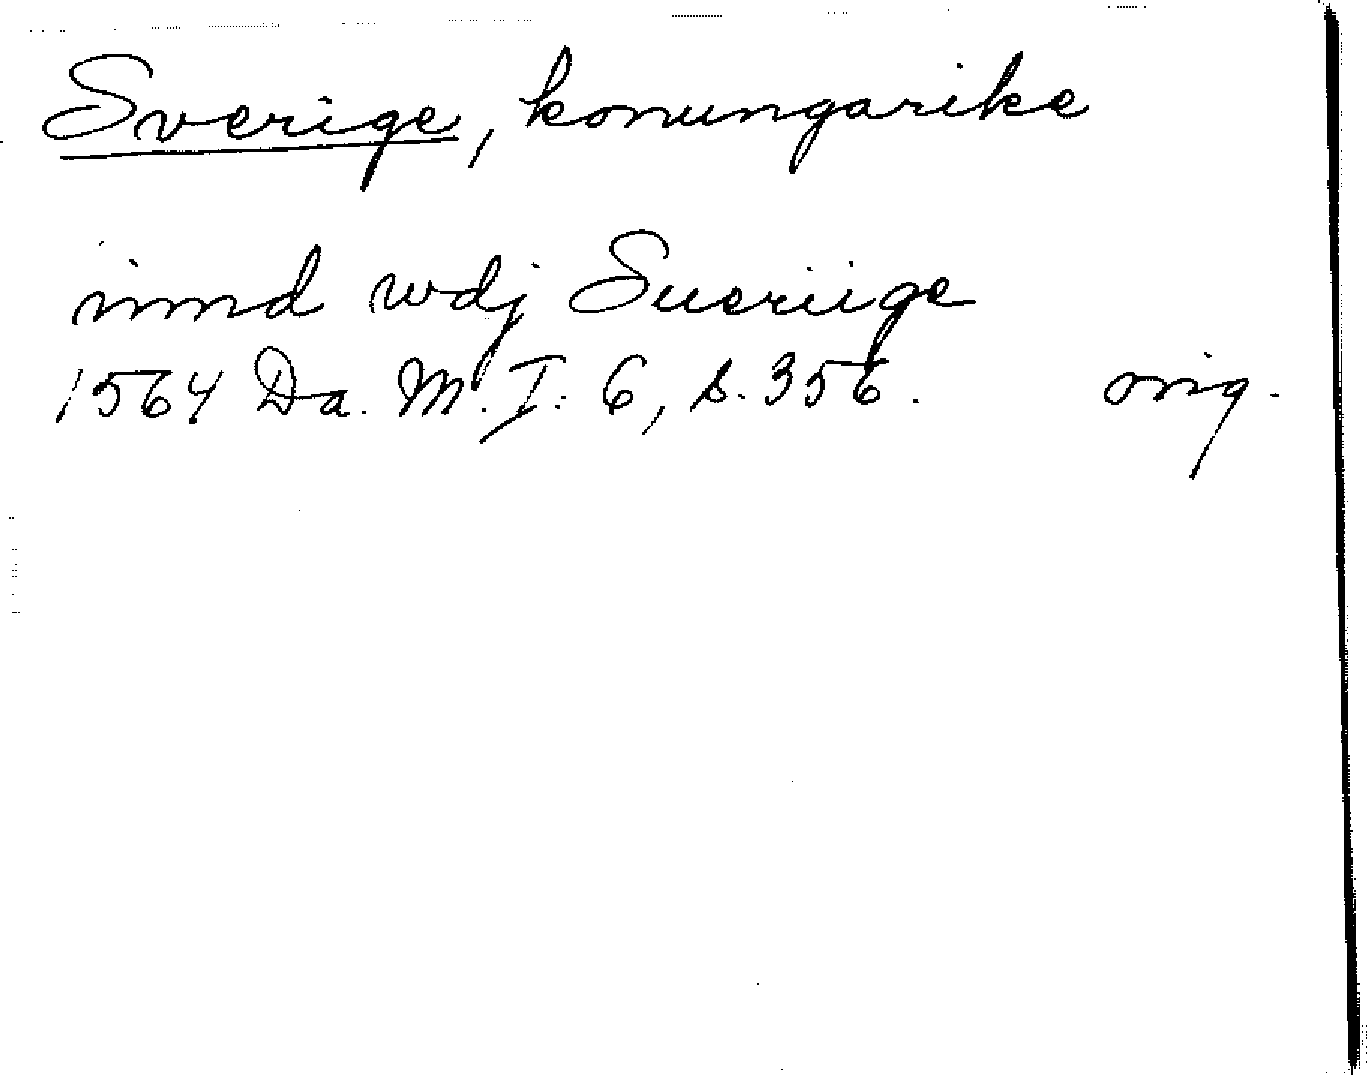 Sverige, konungarike
innd wdj Sueriige
1564 Da. M. I: 6, s. 356. orig.